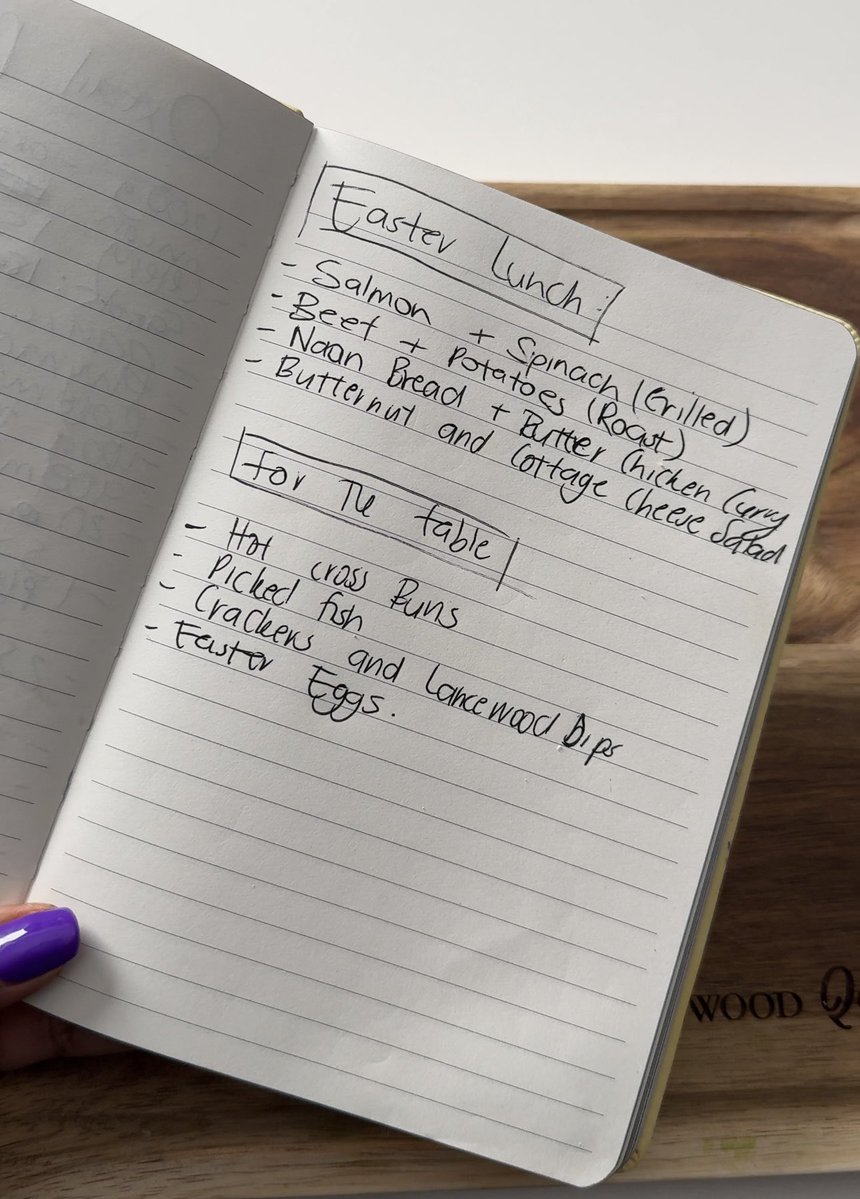 Easter Lunch:
- Salmon + Spinach (Grilled)
- Beef + Potatoes (Roast)
- Naan Bread + Butter Chicken Curry
- Butternut and Cottage Cheese Salad
For The table
- Hot cross Buns
- Picked fish
- Crackers and Lancewood Dips
- Easter Eggs.
WOOD